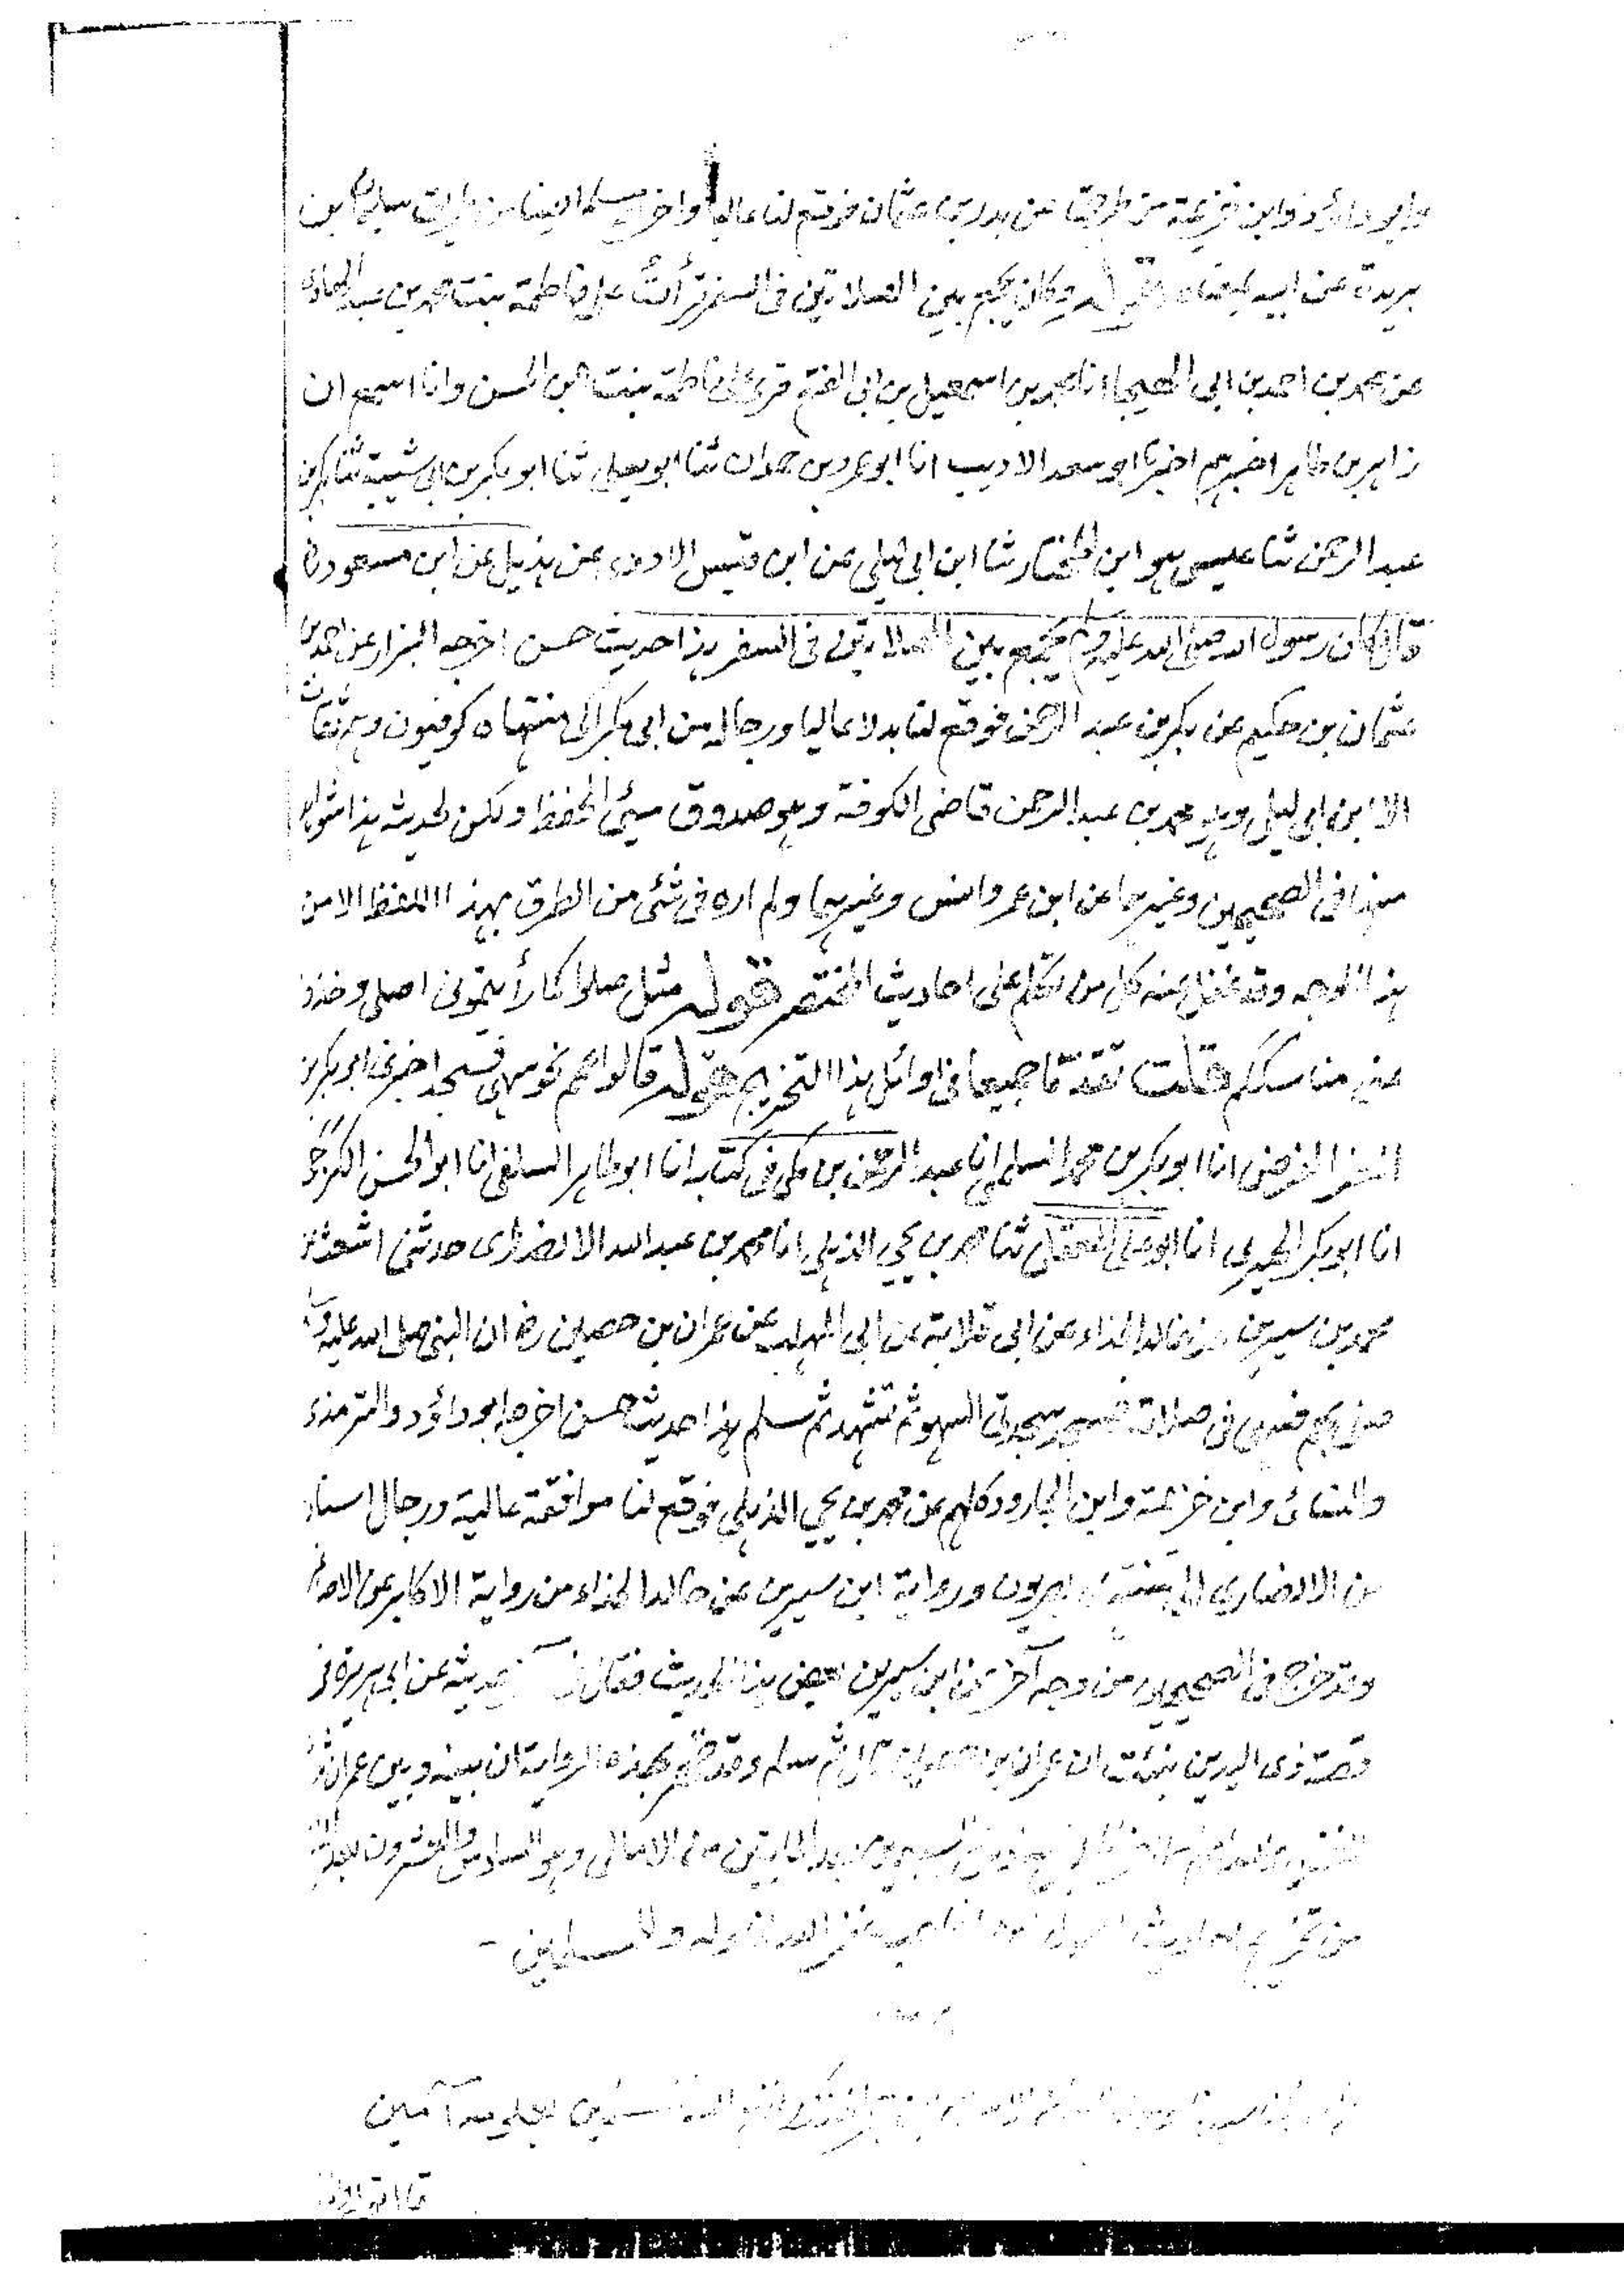 وابو داؤد وابن خزيمة من طرحقا عن بدر بن عثمان فوقع لنا عاليا واخرجه مسلم ايضا من طريق سليمان بن
بريدة عن ابيه بمعناه قوله وكان يجمع بين الصلاتين فى السفر قرأت على فاطمة بنت محمد بن عبد الهادى
عن محمد بن احمد بن ابى الهيجا انا محمد بن اسمعيل بن ابى الفتح قرئ على فاطمة بنت ابى الحسن وانا اسمع ان
زاهر بن طاهر اخبرهم اخبرنا ابو سعد الاديب انا ابو عمرو بن حمدان ثنا ابو يعلى ثنا ابو بكر بن ابى شيبة ثنا بكر بن
عبد الرحمن ثنا عيسى هو ابن المختار ثنا ابن ابى ليلى عن ابن قيس الاودى عن هذيل عن ابن مسعود رض
قال كان رسول الله صلى الله عليه وسلم يجمع بين الصلاتين فى السفر هذا حديث حسن اخرجه البزار عن احمد بن
عثمان بن حكيم عن بكر بن عبد الرحمن فوقع لنا بدلا عاليا ورجاله من ابى بكر الى منتهاه كوفيون وهم ثقات
الا ابن ابى ليلى وهو محمد بن عبد الرحمن قاضى الكوفة وهو صدوق سيئ الحفظ ولكن لحديثه هذا شواهد
منها فى الصحيحين وغيرهما عن ابن عمر وانس وغيرهما ولم اره فى شئ من الطرق بهذا اللفظ الا من
هذا الوجه وقد غفل عنه كل من تكلم على احاديث المختصر قوله مثل صلوا كما رأيتمونى اصلى وخذوا
عنى مناسككم قلت تقدما جميعا فى اوائل هذا التخريج قوله قالواهم نحو سهى فسجد اخبرنى ابو بكر بن
العز الفرضى انا ابو بكر بن محمد السلمى انا عبد الرحمن بن مكى فى كتابه انا ابو طاهر السلفى انا ابو الحسن الكرجى
انا ابو بكر الحيرى انا ابو على المعقلى ثنا محمد بن يحيى الذهلى انا محمد بن عبد الله الانصارى حدثنى اشعث عن
محمد بن سيرين عن خالد الحذاء عن ابى قلابة عن ابى المهلب عن عمران بن حصين رض ان النبى صلى الله عليه وسلم
صلى بهم فسهى فى صلاته فسجد سجدتى السهو ثم تشهد ثم سلم هذا حديث حسن اخرجه ابو داؤد والترمذى
والنسائى وابن خزيمة وابن الجارود كلهم عن محمد بن يحيى الذهلى فوقع لنا موافقة عالية ورجال اسناده
من الانصارى الى منتهاه بصريون ورواية ابن سيرين عن خالد الحذاء من رواية الاكابر عن الاصاغر
وقد خرج فى الصحيحين من وجه آخر عن ابن سيرين بعض هذا الحديث فقال فى حديثه عن ابى هريرة فى
قصة ذى اليدين نبئت ان عمران بن حصين قال ثم سلم وقد ظهر بهذه الرواية ان بينه وبين عمران ثلاثة
السبعين بعد المايتين من الامالى وهو السادس والعشرون بعد
من تخريج احاديث غفر الله له وللمسلمين -
آمين